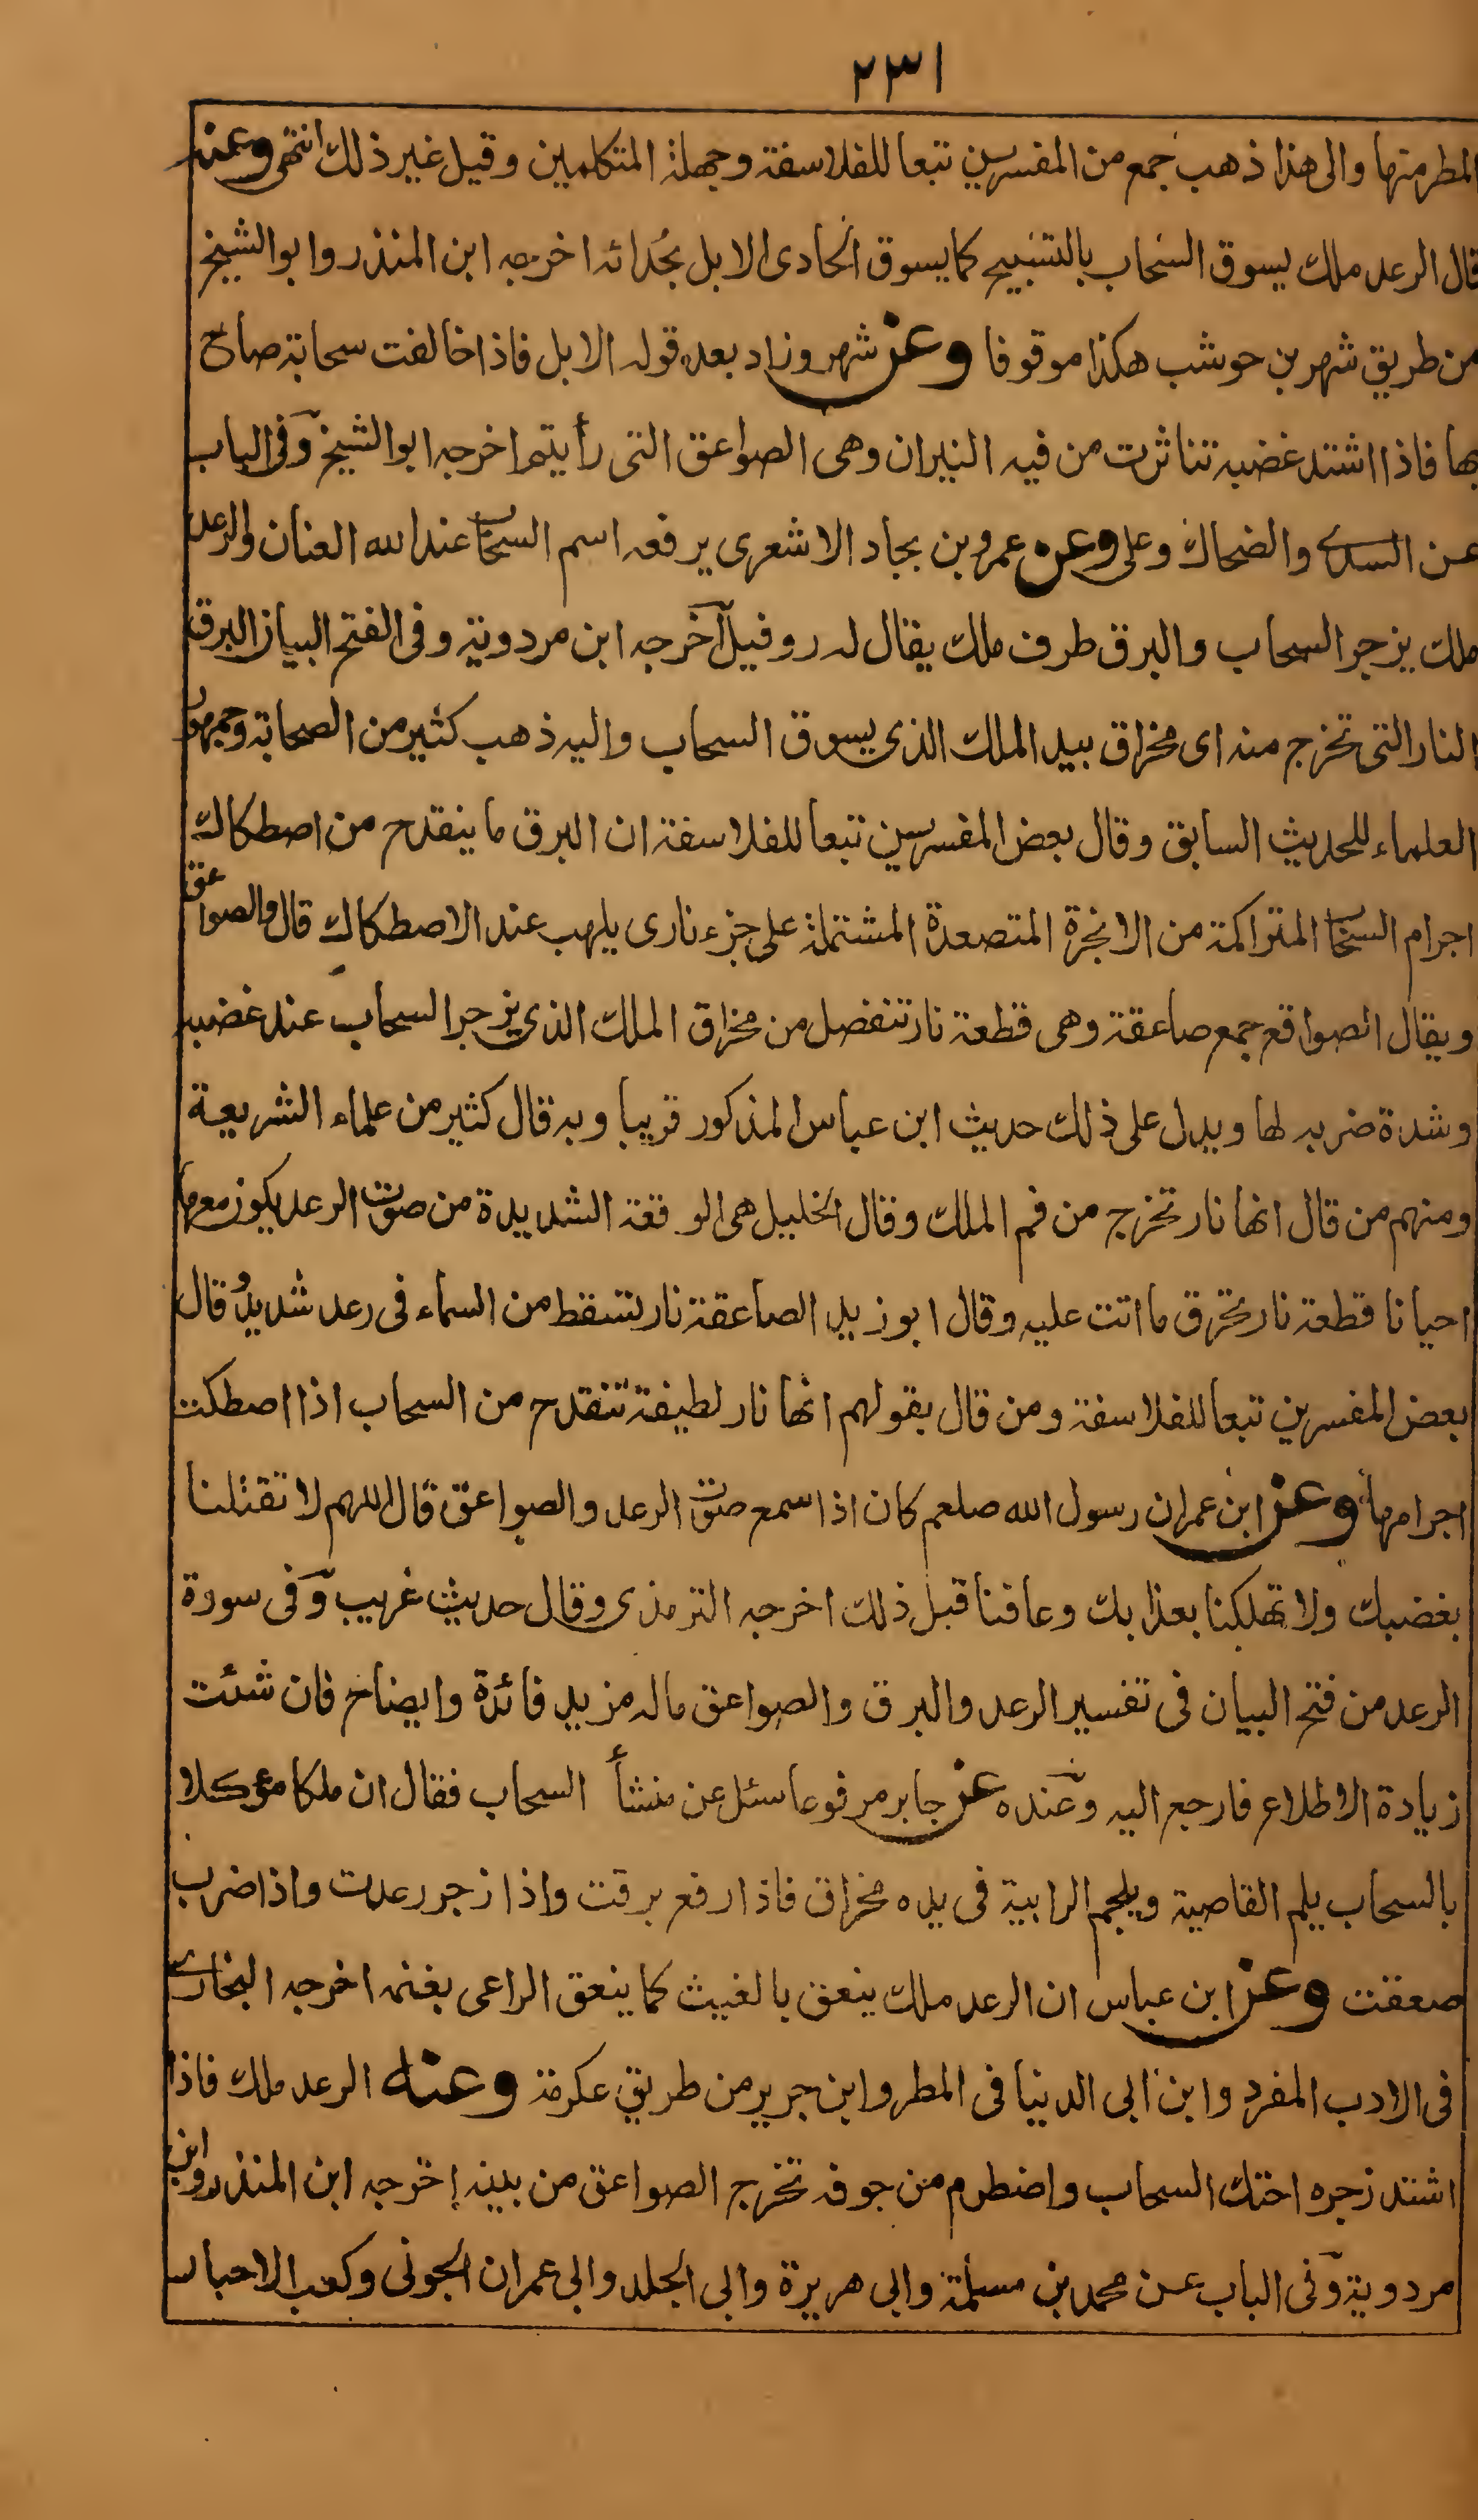 ٢٣١
المطر منها والى هذا ذهب جمع من المفسرين تبعا للفلاسفة وجهلة المتكلمين وقيل غير ذلك انتهى وعنه
قال الرعد ملك يسوق السحاب بالتسبيح كما يسوق الحادى الابل بحُدائه اخرجه ابن المنذر وابو الشيخ
من طريق شهر بن حوشب هكذا موقوفا وعن شهر وزاد بعد قوله الابل فاذا خالفت سحابة صاح
بها فاذا اشتد غضبه تناثرت من فيه النيران وهى الصواعق التى رأيتم اخرجه ابو الشيخ وفى الباب
عن السدى والضحاك وعلى وعن عمرو بن بجاد الاشعرى يرفعه اسم السحاب عند الله العنان والرعد
ملك يزجر السحاب والبرق طرف ملك يقال له روفيل اخرجه ابن مردوية وفى الفتح البيان البرق
النار التى تخرج منه اى مخراق بيد الملك الذى يسوق السحاب واليه ذهب كثير من الصحابة وجمهور
العلماء للحديث السابق وقال بعض المفسرين تبعا للفلاسفة ان البرق ما ينقدح من اصطكاك
اجرام السحاب المتراكمة من الابخرة المتصعدة المشتملة على جزء نارى يلهب عند الاصطكاك قال والصواعق
ويقال الصواقع جمع صاعقة وهى قطعة نار تنفصل من مخراق الملك الذى يزجر السحاب عند غضبه
وشدة ضربه لها ويدل على ذلك حديث ابن عباس المذكور قريبا وبه قال كثير من علماء الشريعة
ومنهم من قال انها نار تخرج من فم الملك وقال الخليل هى الوقعة الشديدة من صوت الرعد يكون معها
احيانا قطعة نار تحرق ما اتت عليه وقال ابو زيد الصاعقة نار تسقط من السماء فى رعد شديدٌ وقال
بعض المفسرين تبعا للفلاسفة ومن قال بقولهم انها نار لطيفة تنقدح من السحاب اذا اصطكت
اجرامها وعن ابن عمر ان رسول الله صلعم كان اذا سمع صوت الرعد والصواعق قال اللهم لا تقتلنا
بغضبك ولا تهلكنا بعذابك وعافنا قبل ذلك اخرجه الترمذى وقال حديث غريب وفى سورة
الرعد من فتح البيان فى تفسير الرعد والبرق والصواعق ماله مزيد فائدة وايضاح فان شئت
زيادة الاطلاع فارجع اليه وعنده عن جابر مرفوعا سئل عن منشأ السحاب فقال ان ملكا مؤكلا
بالسحاب يلم القاصية ويلجم الرابية فى يده مخراق فاذا رفع برقت واذا زجر رعدت واذا ضرب
صعقت وعن ابن عباس ان الرعد ملك ينعق بالغيث كما ينعق الراعى بغنمه اخرجه البخارى
فى الادب المفرد وابن ابى الدنيا فى المطر وابن جرير من طريق عكرمة وعنه الرعد ملك فاذا
اشتد زجره احتك السحاب واضطرم من جوفه تخرج الصواعق من بينه اخرجه ابن المنذر وابن
مردوية وفى الباب عن محمد بن مسلمة وابى هريرة وابى الجلد وابى عمران الجونى وكعب الاحبار